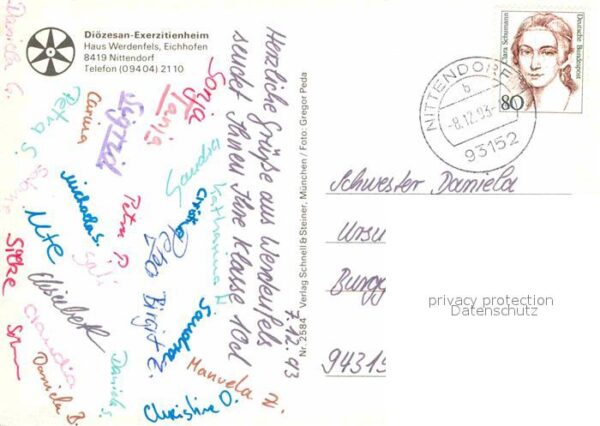 Diözesan-Exerzitienheim
Haus Werdenfels, Eichhofen
8419 Nittendorf
Telefon (0 94 04) 21 10
Herzliche Grüße aus Werdenfels
sendet Ihnen Ihre Klasse 10d
7.12.93
Daniela G.
Petra S.
Carina
Sigrid
Tanja
Sonja
Michaela S.
Petra P.
Katharina H.
Ute
Gabi
Elisabeth
Birgit E.
Sandra
Silke
Claudia
Daniela B.
Daniela S.
Christine D.
Manuela Z.
Nr. 2584 Verlag Schnell & Steiner, München / Foto: Gregor Peda
Clara Schumann
Deutsche Bundespost
80
NITTENDORF
b
-8.12.93-
93152
Schwester Daniela
Ursu
Burgg
94315
privacy protection
Datenschutz